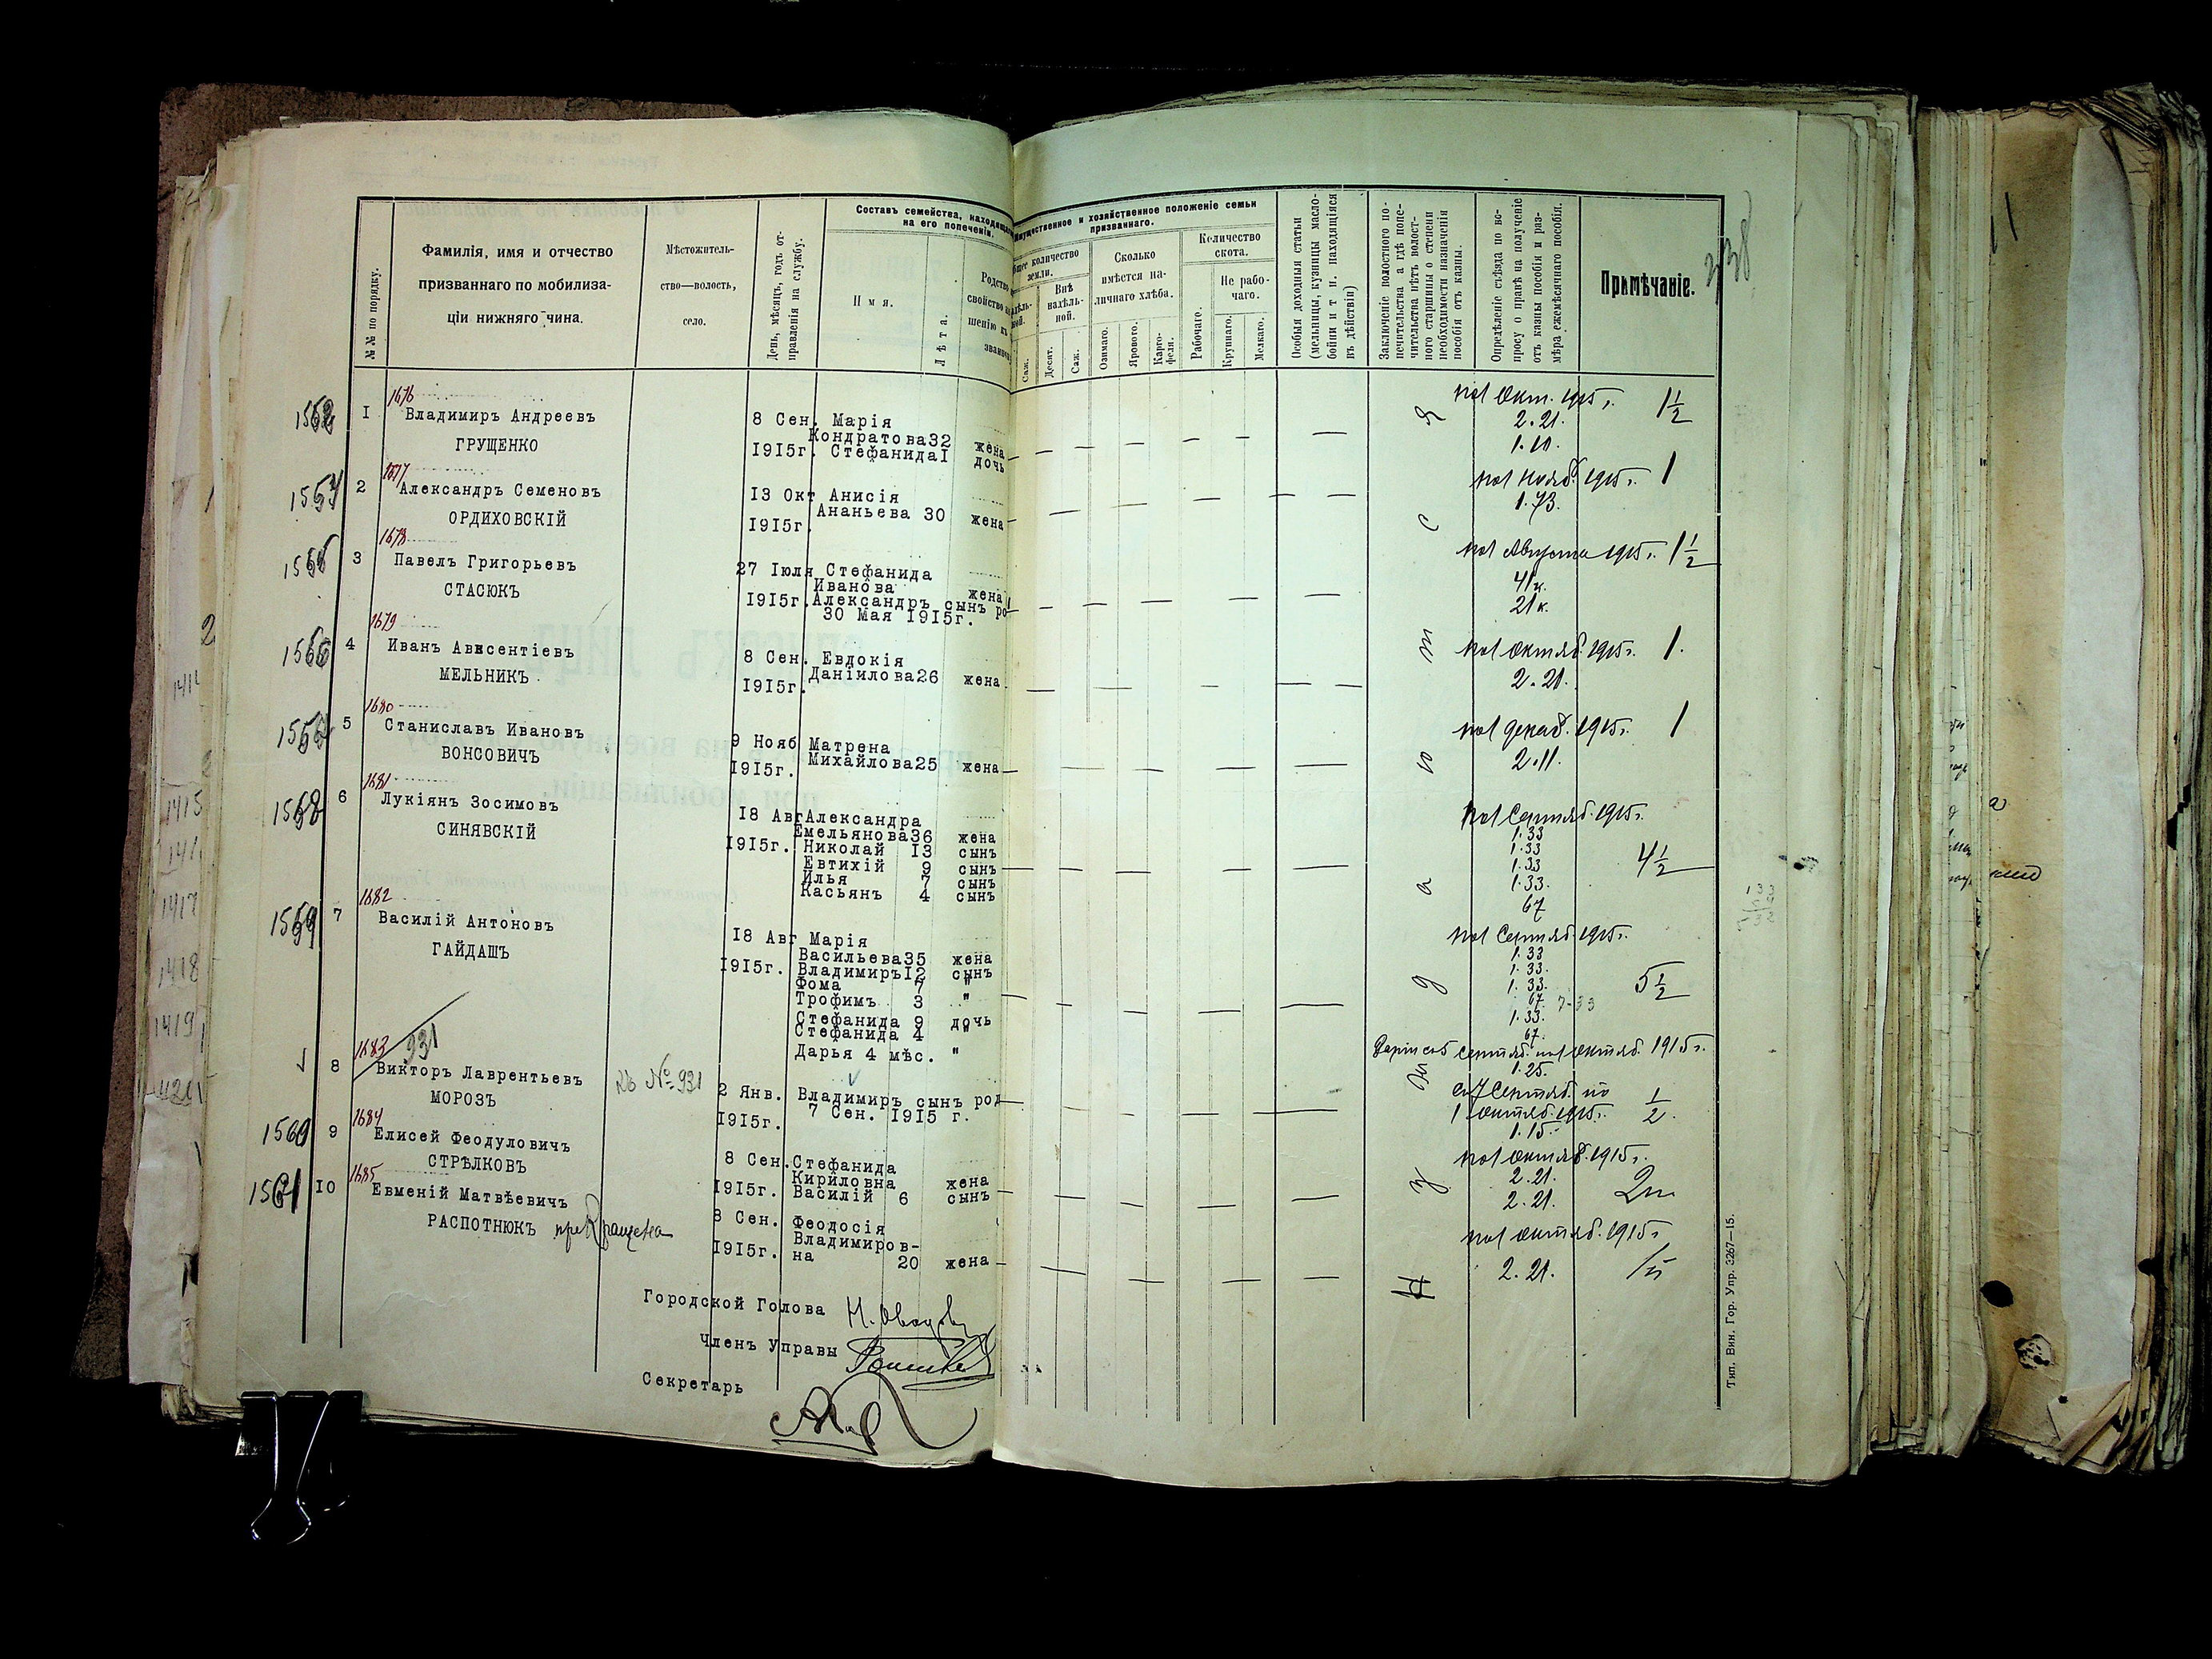 №№ по порядку.
Фамилія, имя и отчество
призваннаго по мобилиза-
ціи нижняго чина.
Мѣстожитель-
ство—волость,
село.
День, мѣсяцъ, годъ от-
правленія на службу.
Составъ семейства, находящ
на его попеченіи.
Имя.
Лѣта.
Родство
свойство
шенію къ
званном
Имущественное и хозяйственное положеніе семьи
призваннаго.
бщее количество
земли.
Саж.
Внѣ
надѣль-
ной.
Десят.
Саж.
Сколько
имѣется на-
личнаго хлѣба.
Озимаго.
Ярового.
Карто-
феля.
Количество
скота.
Рабочаго.
Не рабо-
чаго.
Крупнаго.
Мелкаго.
Особыя доходныя статьи
(мельницы, кузницы масло-
бойни и т п. находящіяся
въ дѣйствіи)
Заключеніе волостного по-
печительства а гдѣ попе-
чительства нѣтъ волост-
ного старшины о степени
необходимости назначенія
пособія отъ казны.
Опредѣленіе съѣзда по во-
просу о правѣ на полученіе
отъ казны пособія и раз-
мѣра ежемѣсячнаго пособія.
Примѣчаніе.
338
1676
I Владимиръ Андреевъ
ГРУЩЕНКО
8 Сен. Марія
Кондратова 32 жена
1915г. Стефанида I дочь
по 1 Окт. 1915 г. 1½
2.21.
1.10.
1677
2 Александръ Семеновъ
ОРДИХОВСКІЙ
13 Окт Анисія
Ананьева 30 жена
1915г.
по 1 Нояб. 1915 г. 1
1.73.
1678
3 Павелъ Григорьевъ
СТАСЮКЪ
27 Іюля Стефанида
Иванова жена
1915г. Александръ сынъ ро
30 Мая 1915г.
по 1 Августа 1915 г. 1½
41 к.
21 к.
1679
4 Иванъ Авксентіевъ
МЕЛЬНИКЪ
8 Сен. Евдокія
Даніилова 26 жена
1915г.
по 1 Октяб. 1915 г. 1.
2.21.
1680
5 Станиславъ Ивановъ
ВОНСОВИЧЪ
9 Нояб Матрена
Михайлова 25 жена
1915г.
по 1 декаб. 1915 г. 1
2.11.
1681
6 Лукіянъ Зосимовъ
СИНЯВСКІЙ
18 Авг Александра
Емельянова 36 жена
1915г. Николай 13 сынъ
Евтихій 9 сынъ
Илья 7 сынъ
Касьянъ 4 сынъ
по 1 Сентяб. 1915 г.
1.33
1.33
1.33
1.33.
67
4½
1682
7 Василій Антоновъ
ГАЙДАШЪ
18 Авг Марія
Васильева 35 жена
1915г. Владимиръ 12 сынъ
Фома 7 "
Трофимъ 3 "
Стефанида 9 дочь
Стефанида 4 "
Дарья 4 мѣс. "
по 1 Сентяб. 1915 г.
1.33
1.33.
1.33.
67.
1.33.
67.
5½
1683
931
8 Викторъ Лаврентьевъ
МОРОЗЪ
№ 931
2 Янв. Владимиръ сынъ род
7 Сен. 1915 г.
1915г.
1.25.
с 7 Сентяб. по
1 Октяб. 1915 г. ½.
1.15
1684
9 Елисей Феодуловичъ
СТРѢЛКОВЪ
8 Сен. Стефанида
Кириловна жена
1915г. Василій 6 сынъ
по 1 Октяб. 1915 г.
2.21.
2.21.
1685
10 Евменій Матвѣевичъ
РАСПОТНЮКЪ прекращена
8 Сен. Феодосія
Владимиров-
1915г. на 20 жена
по 1 Октяб. 1915 г
2.21.
Н у ж д а ю т с я
Городской Голова
Членъ Управы
Секретарь
Тип. Вин. Гор. Упр. 3267—15.
1415
1417
1418
1419